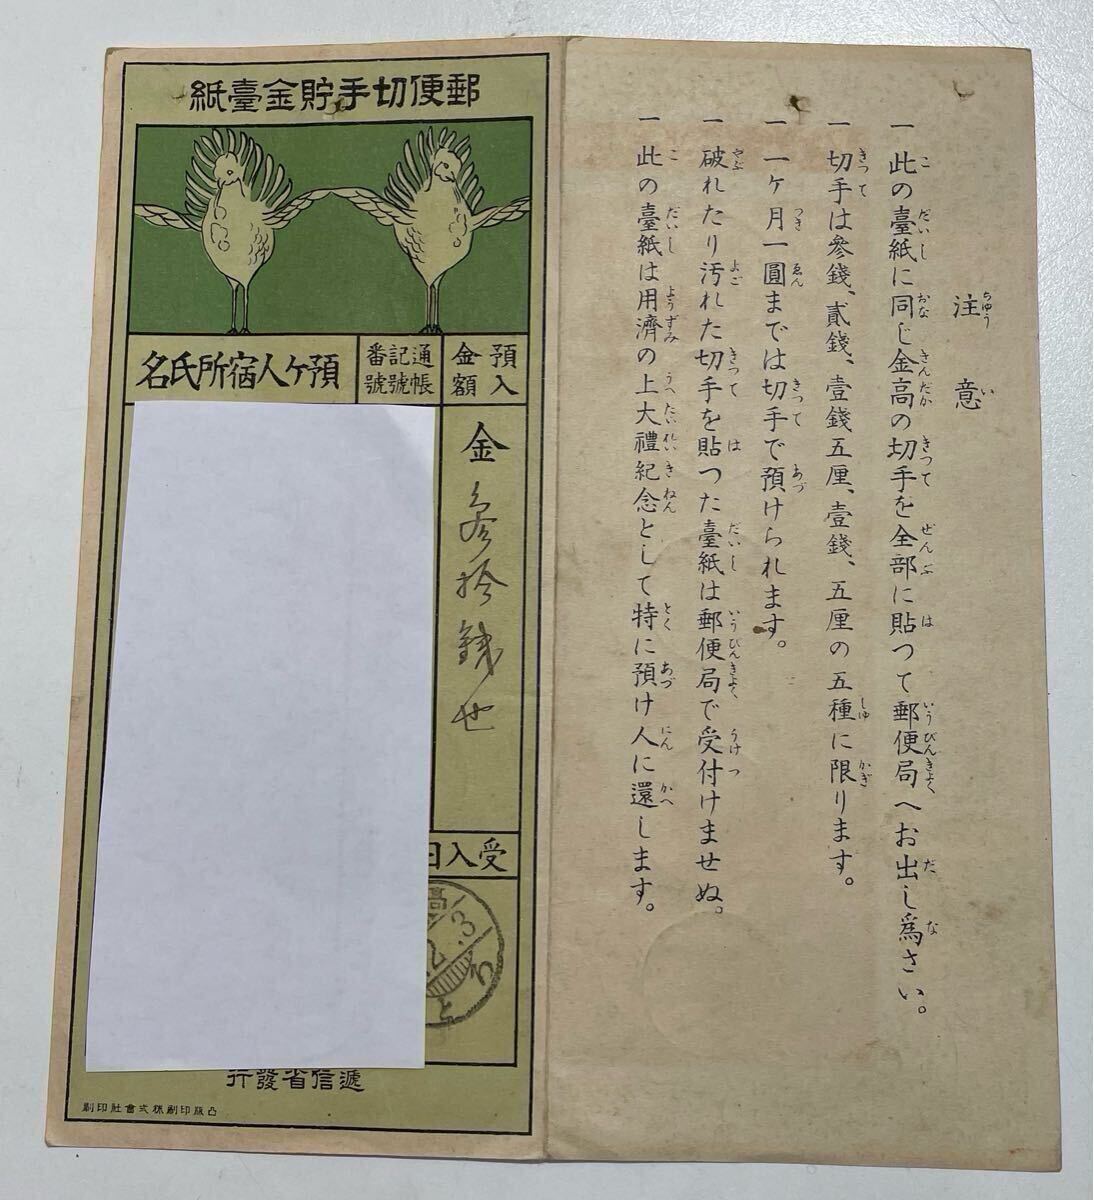 注意
一 此の臺紙に同じ金高の切手を全部に貼つて郵便局へお出し爲さい。
一 切手は參錢、貳錢、壹錢五厘、壹錢、五厘の五種に限ります。
一 一ヶ月一圓までは切手で預けられます。
一 破れたり汚れた切手を貼つた臺紙は郵便局で受付けませぬ。
一 此の臺紙は用濟の上大禮紀念として特に預け人に還します。
郵便切手貯金臺紙
預入金額
通帳記號番號
預ケ人宿所氏名
金 參拾錢也
受入日
遞信省發行
凸版印刷株式會社印刷